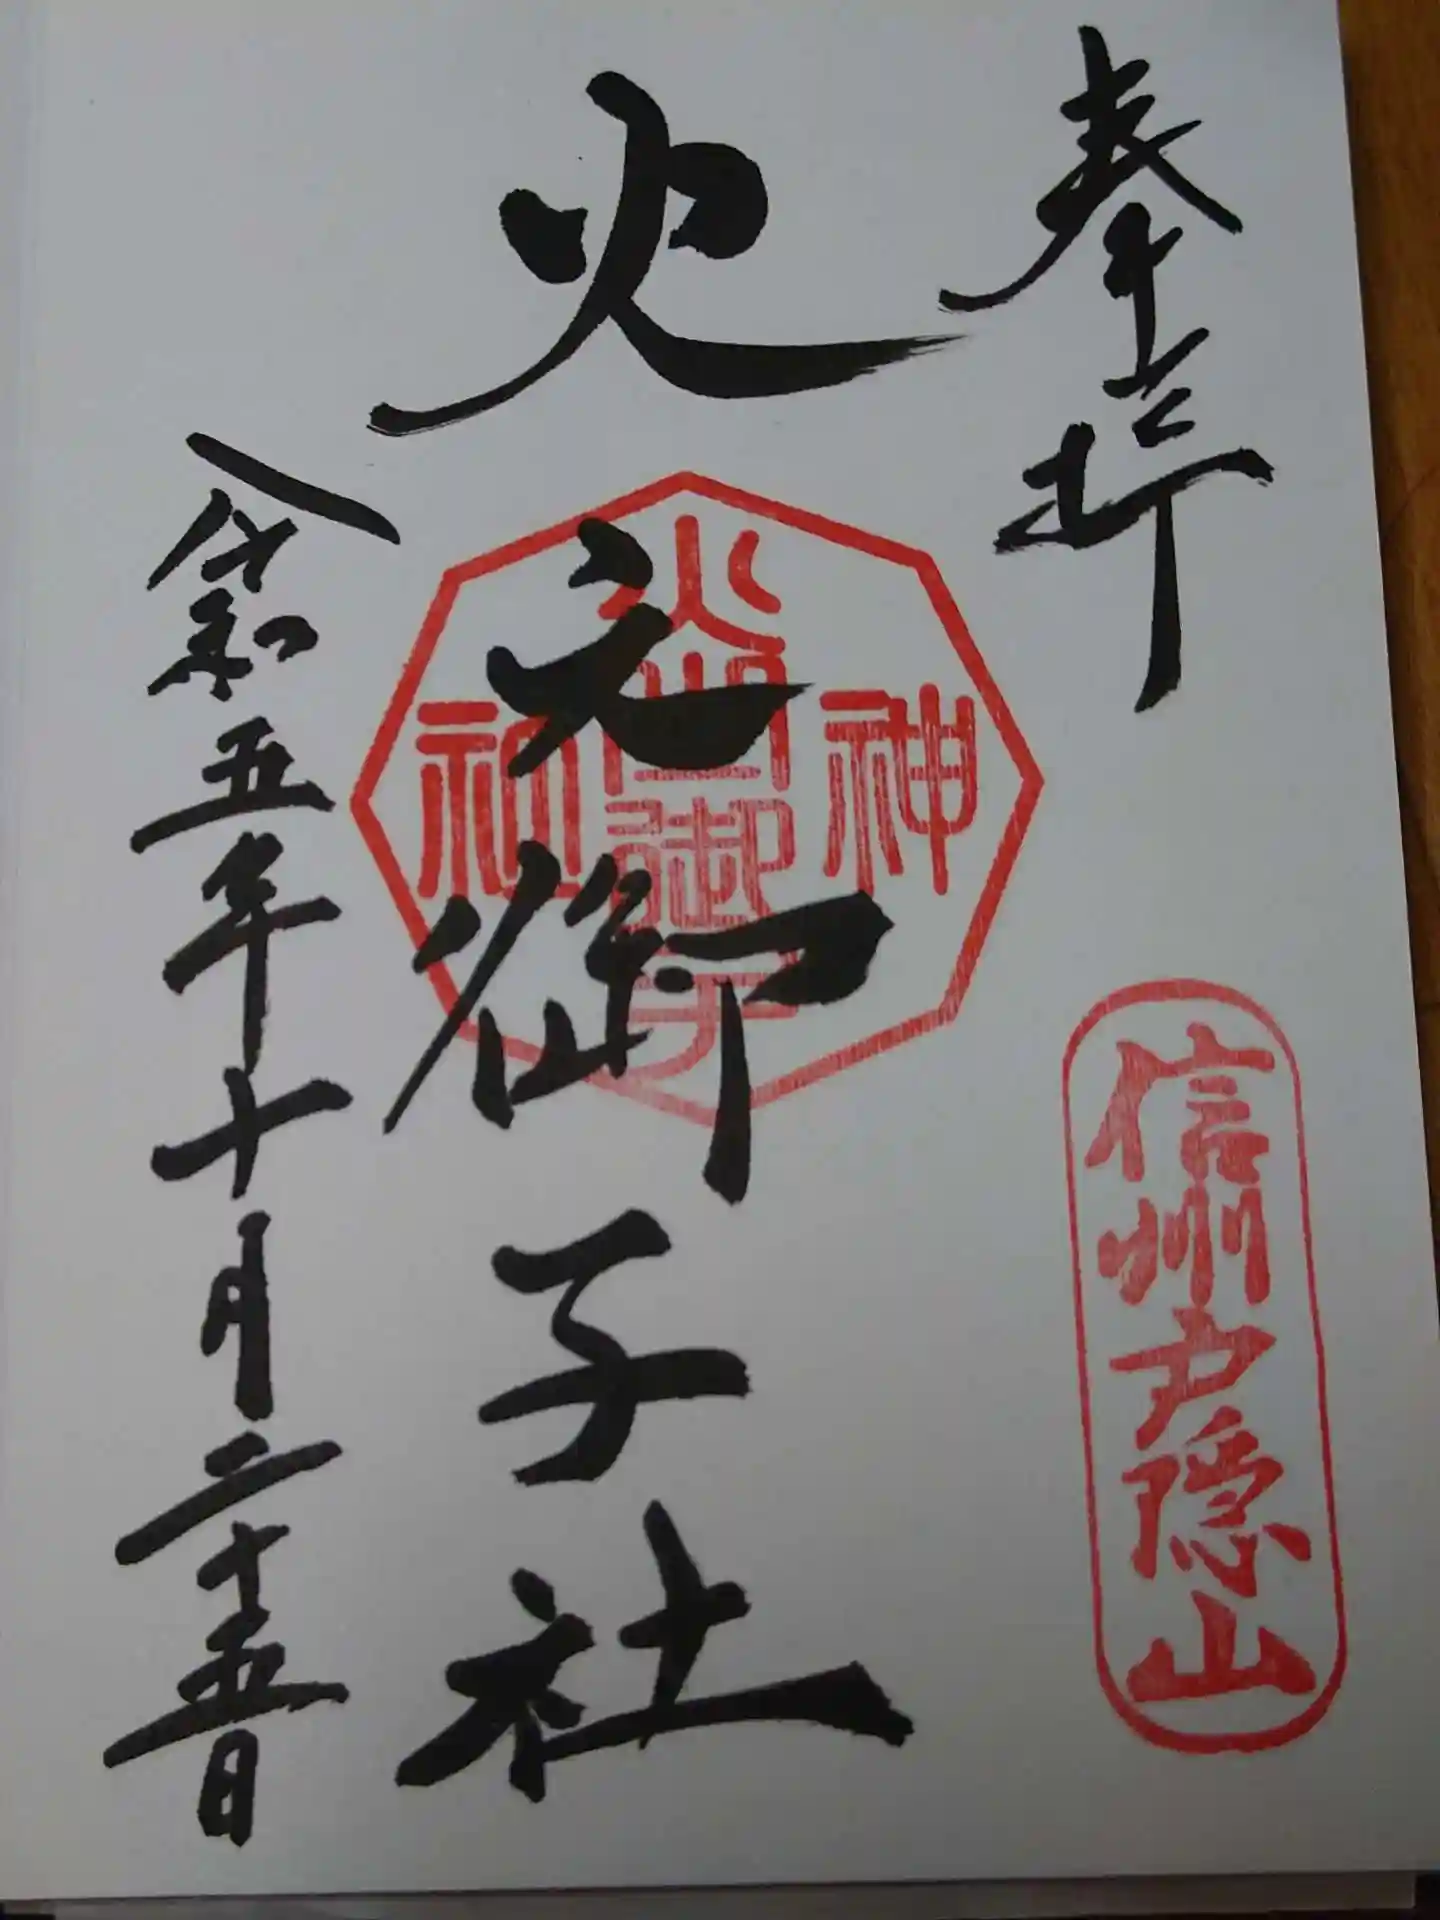 奉拝
信州戸隠山
火之御子社
神
火
御子
社
令和五年十月二十五日